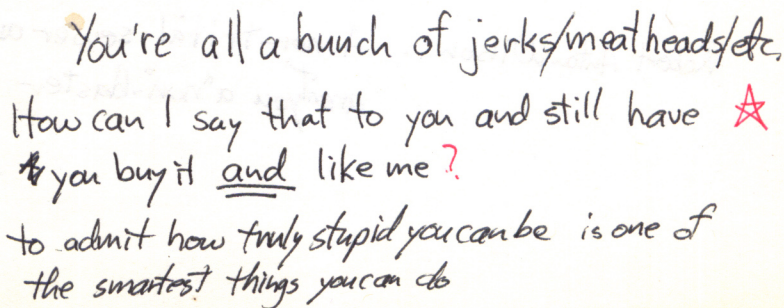 You're all a bunch of jerks/meatheads/etc.
How can I say that to you and still have
you buy it and like me?
to admit how truly stupid you can be is one of
the smartest things you can do